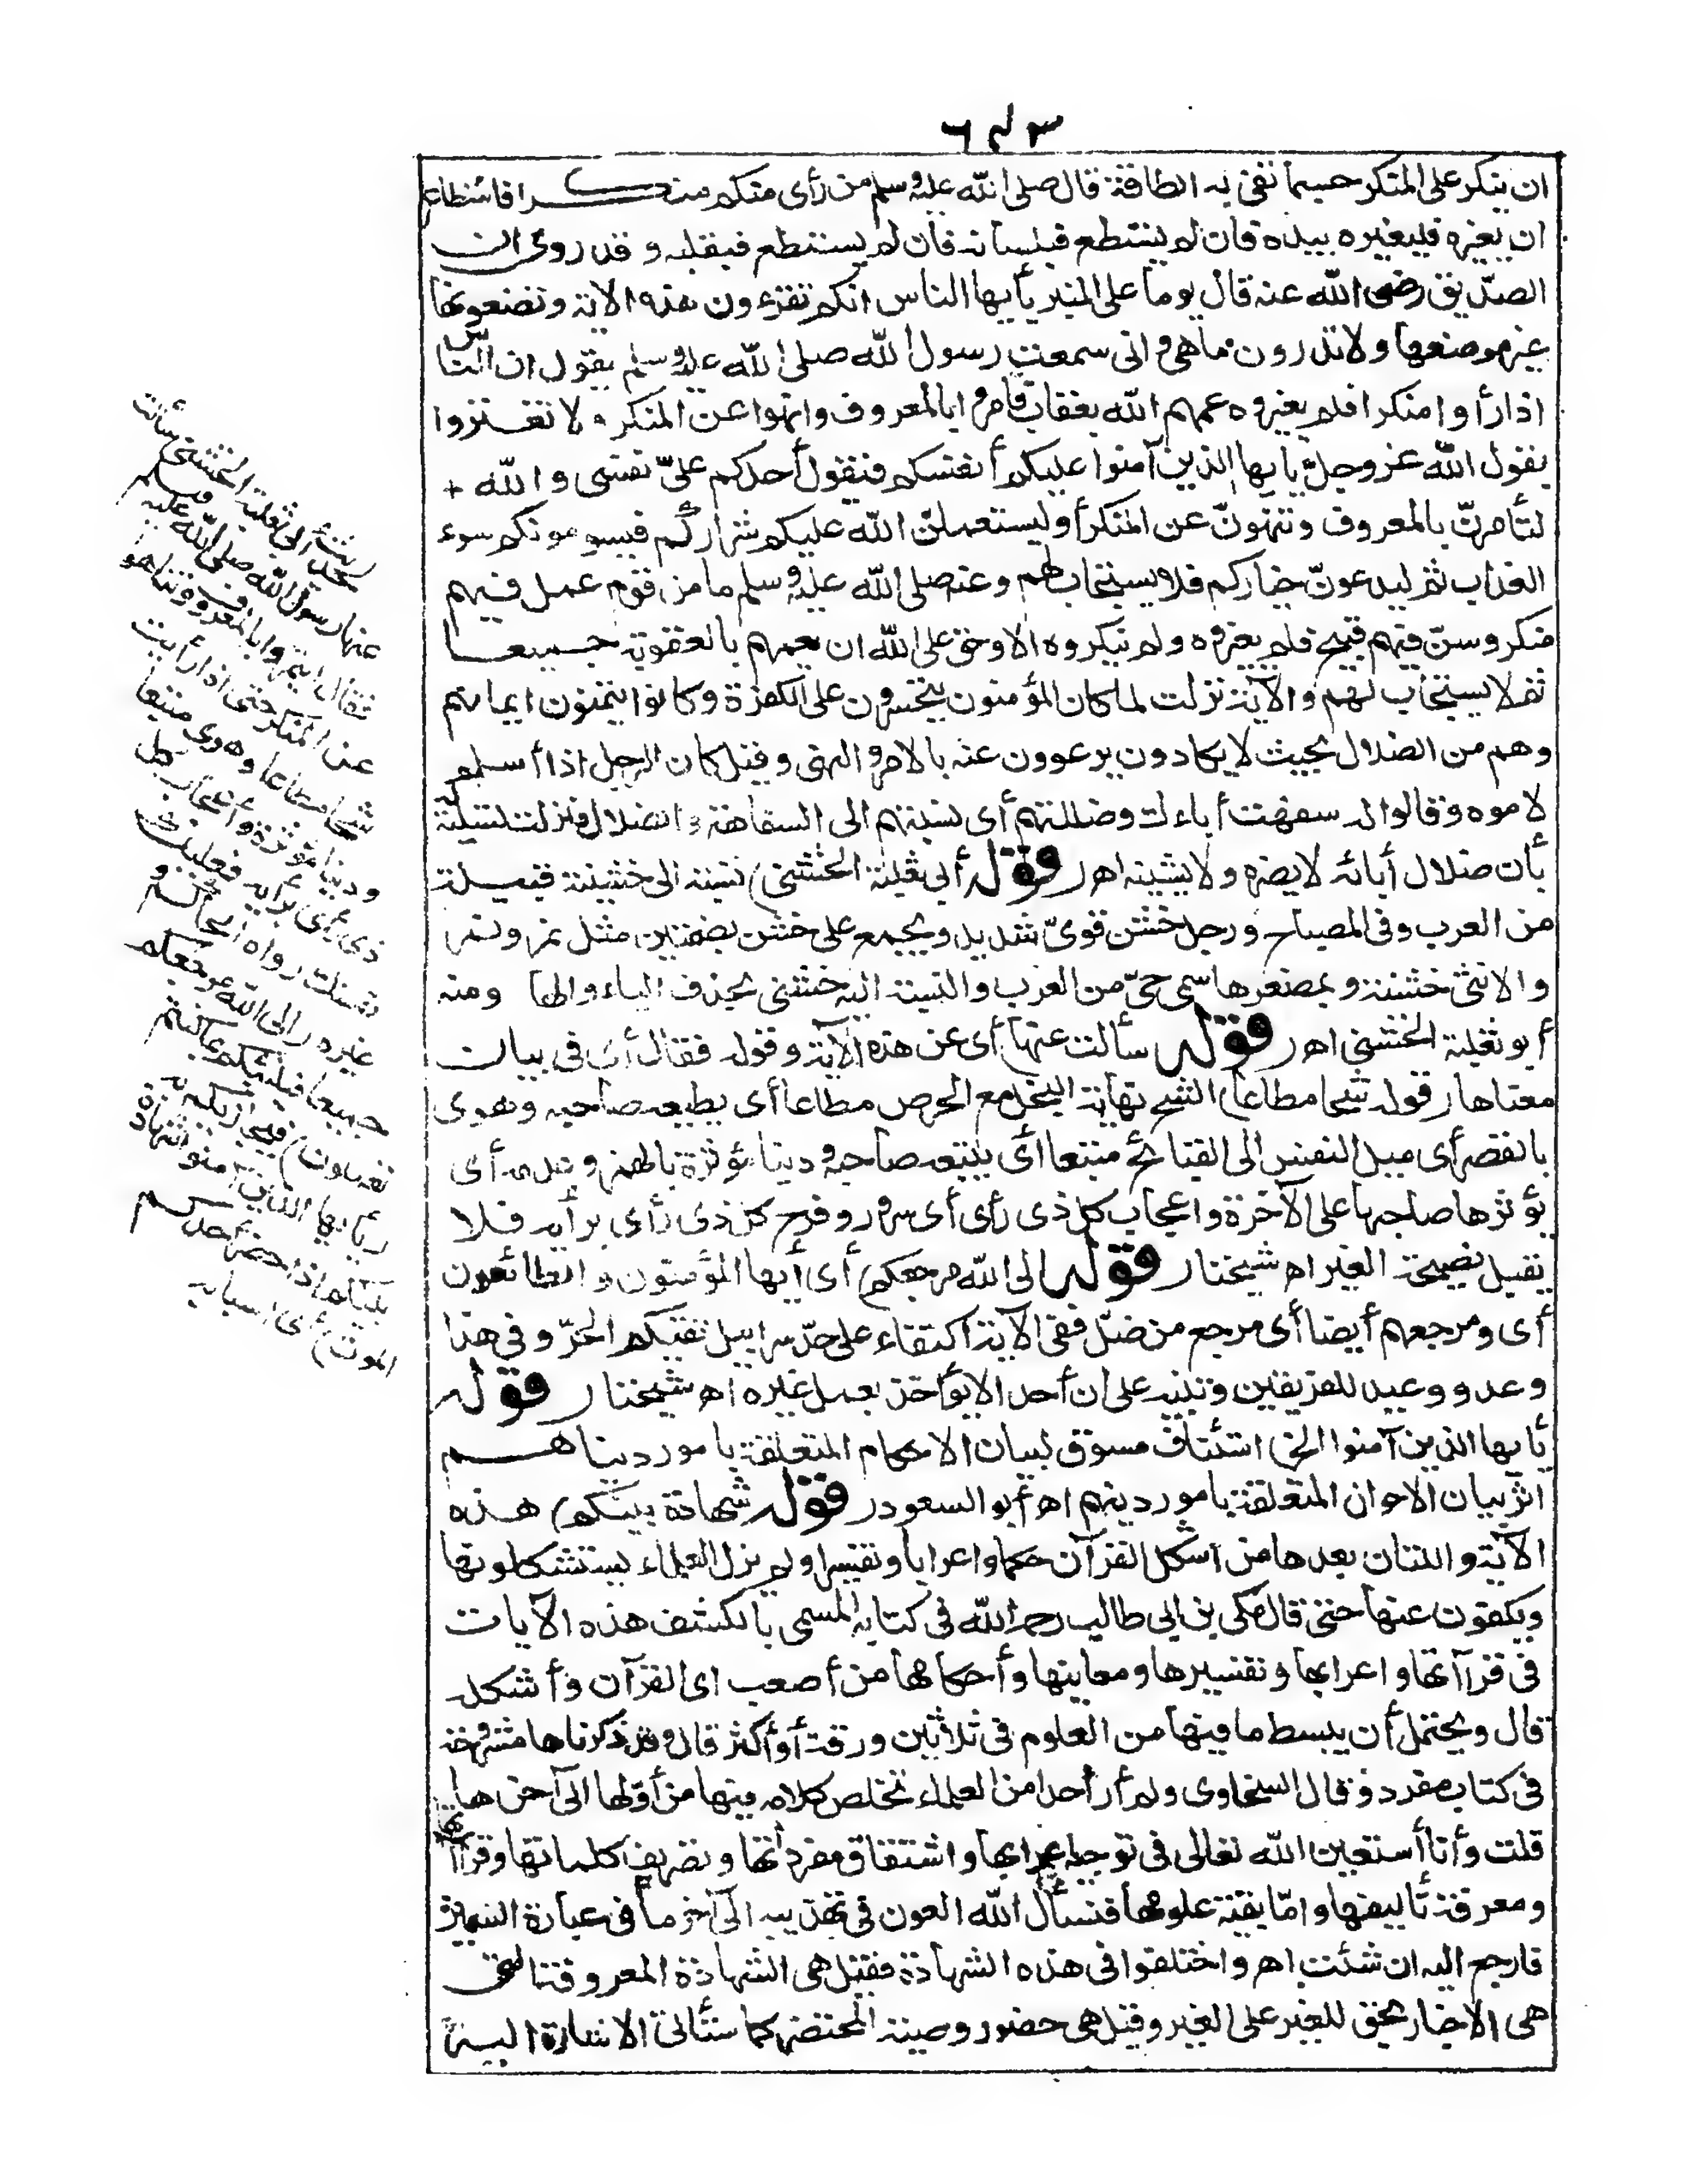 ٦٤٣
ان ينكر على المنكر حسبما تفى به الطاقة قال صلى الله عليه وسلم من رأى منكم منكرا فاستطاع
ان يغيره فليغيره بيده فان لم يستطع فبلسانه فان لم يستطع فبقلبه وقد روى ان
الصدّيق رضى الله عنه قال يوما على المنبر يأيها الناس انكم تقرءون هذه الآية وتضعونها
غير موضعها ولا تدرون ما هى وانى سمعت رسول الله صلى الله عليه وسلم يقول ان الناس
اذا رأوا منكرا فلم يغيروه عمهم الله بعقاب فأمروا بالمعروف وانهوا عن المنكر ولا تغتروا
بقول الله عز وجلّ يا يها الذين آمنوا عليكم أنفسكم فيقول أحدكم علىّ نفسى والله
لتأمرنّ بالمعروف وتنهونّ عن المنكر أو ليستعملنّ الله عليكم شراركم فيسومونكم سوء
العذاب ثم ليدعونّ خياركم فلا يستجاب لهم وعنه صلى الله عليه وسلم ما من قوم عمل فيهم
منكر وسنّ فيهم قبيح فلم يغيروه ولم ينكروه الا وحق على الله ان يعمهم بالعقوبة جميعا
ثم لا يستجاب لهم والآية نزلت لما كان المؤمنون يتحسرون على الكفرة وكانوا يتمنون ايمانهم
وهم من الضلال بحيث لا يكادون يرعوون عنه بالامر والنهى وقيل كان الرجل اذا أسلم
لاموه وقالوا له سفهت أباءك وضللتهم أى نسبتهم الى السفاهة والضلال فنزلت تسلية له
بأن ضلال أبائه لا يضره ولا يشينه اهـ (قوله أبى ثعلبة الخشنى) نسبة الى خشينة قبيلة
من العرب وفى المصباح ورجل خشن قوىّ شديد ويجمع على خشن بضمتين مثل نمر ونمر
والانثى خشنة وبمصغرها سمى حىّ من العرب والنسبة اليه خشنى بحذف الياء والها ومنه
أبو ثعلبة الخشنى اهـ (قوله سألت عنها) أى عن هذه الآية وقوله فقال أى فى بيان
معناها (قوله شحا مطاعا) الشح نهاية البخل مع الحرص مطاعا أى يطيعه صاحبه وهوى
بالقصر أى ميل النفس الى القبائح متبعا أى يتبعه صاحبه ودنيا مؤثرة بالهمز وبدله أى
يؤثرها صاحبها على الآخرة واعجاب كل ذى رأى أى سرور وفرح كل ذى رأى برأيه فلا
يقبل نصيحة الغير اهـ شيخنا (قوله الى الله مرجعكم) أى أيها المؤمنون والطائعون
أى ومرجعهم أيضا أى مرجع من ضلّ ففى الآية اكتفاء على حدّ سرابيل تقيكم الحرّ وفى هذا
وعد ووعيد للفريقين وتنبيه على ان أحدا لا يؤاخذ بعمل غيره اهـ شيخنا (قوله
يأيها الذين آمنوا الخ) استئناف مسوق لبيان الاحكام المتعلقة بامور دنياهم
اثر بيان الاحوال المتعلقة بامور دينهم اهـ أبو السعود (قوله شهادة بينكم) هذه
الآية واللتان بعدها من أشكل القرآن حكما واعرابا وتفسيرا ولم يزل العلماء يستشكلونها
ويكفون عنها حتى قال مكى بن أبى طالب رحمه الله فى كتابه المسمى بالكشف هذه الآيات
فى قراآتها واعرابها وتفسيرها ومعانيها وأحكامها من أصعب اى القرآن وأشكله
قال ويحتمل أن يبسط ما فيها من العلوم فى ثلاثين ورقة أو أكثر قال وقد ذكرناها مشروحة
فى كتاب مفرد وقال السخاوى ولم أر أحدا من العلماء تخلص كلامه فيها من أوّلها الى آخرها
قلت وأنا أستعين الله تعالى فى توجيه اعرابها واشتقاق مفرداتها وتصريف كلماتها وقراآتها
ومعرفة تأليفها وامّا بقية علومها فنسأل الله العون فى تهذيبه الى آخر ما فى عبارة السمين
فارجع اليه ان شئت اهـ واختلفوا فى هذه الشهادة فقيل هى الشهادة المعروفة التى
هى الاخبار بحق للغير على الغير وقيل هى حضور وصية المحتضر كما ستأتى الاشارة اليه
(حديث أبى ثعلبة الخشنى سألت
عنها رسول الله صلى الله عليه وسلم
فقال ائتمروا بالمعروف وتناهوا
عن المنكر حتى اذا رأيت
شحا مطاعا وهوى متبعا
ودنيا مؤثرة واعجاب كل
ذى رأى برأيه فعليك
نفسك رواه الحاكم و
غيره (الى الله مرجعكم
جميعا فينبئكم بما كنتم
تعملون) فيجازيكم به
(يأيها الذين آمنوا شهادة
بينكم اذا حضر أحدكم
الموت) أى أسبابه